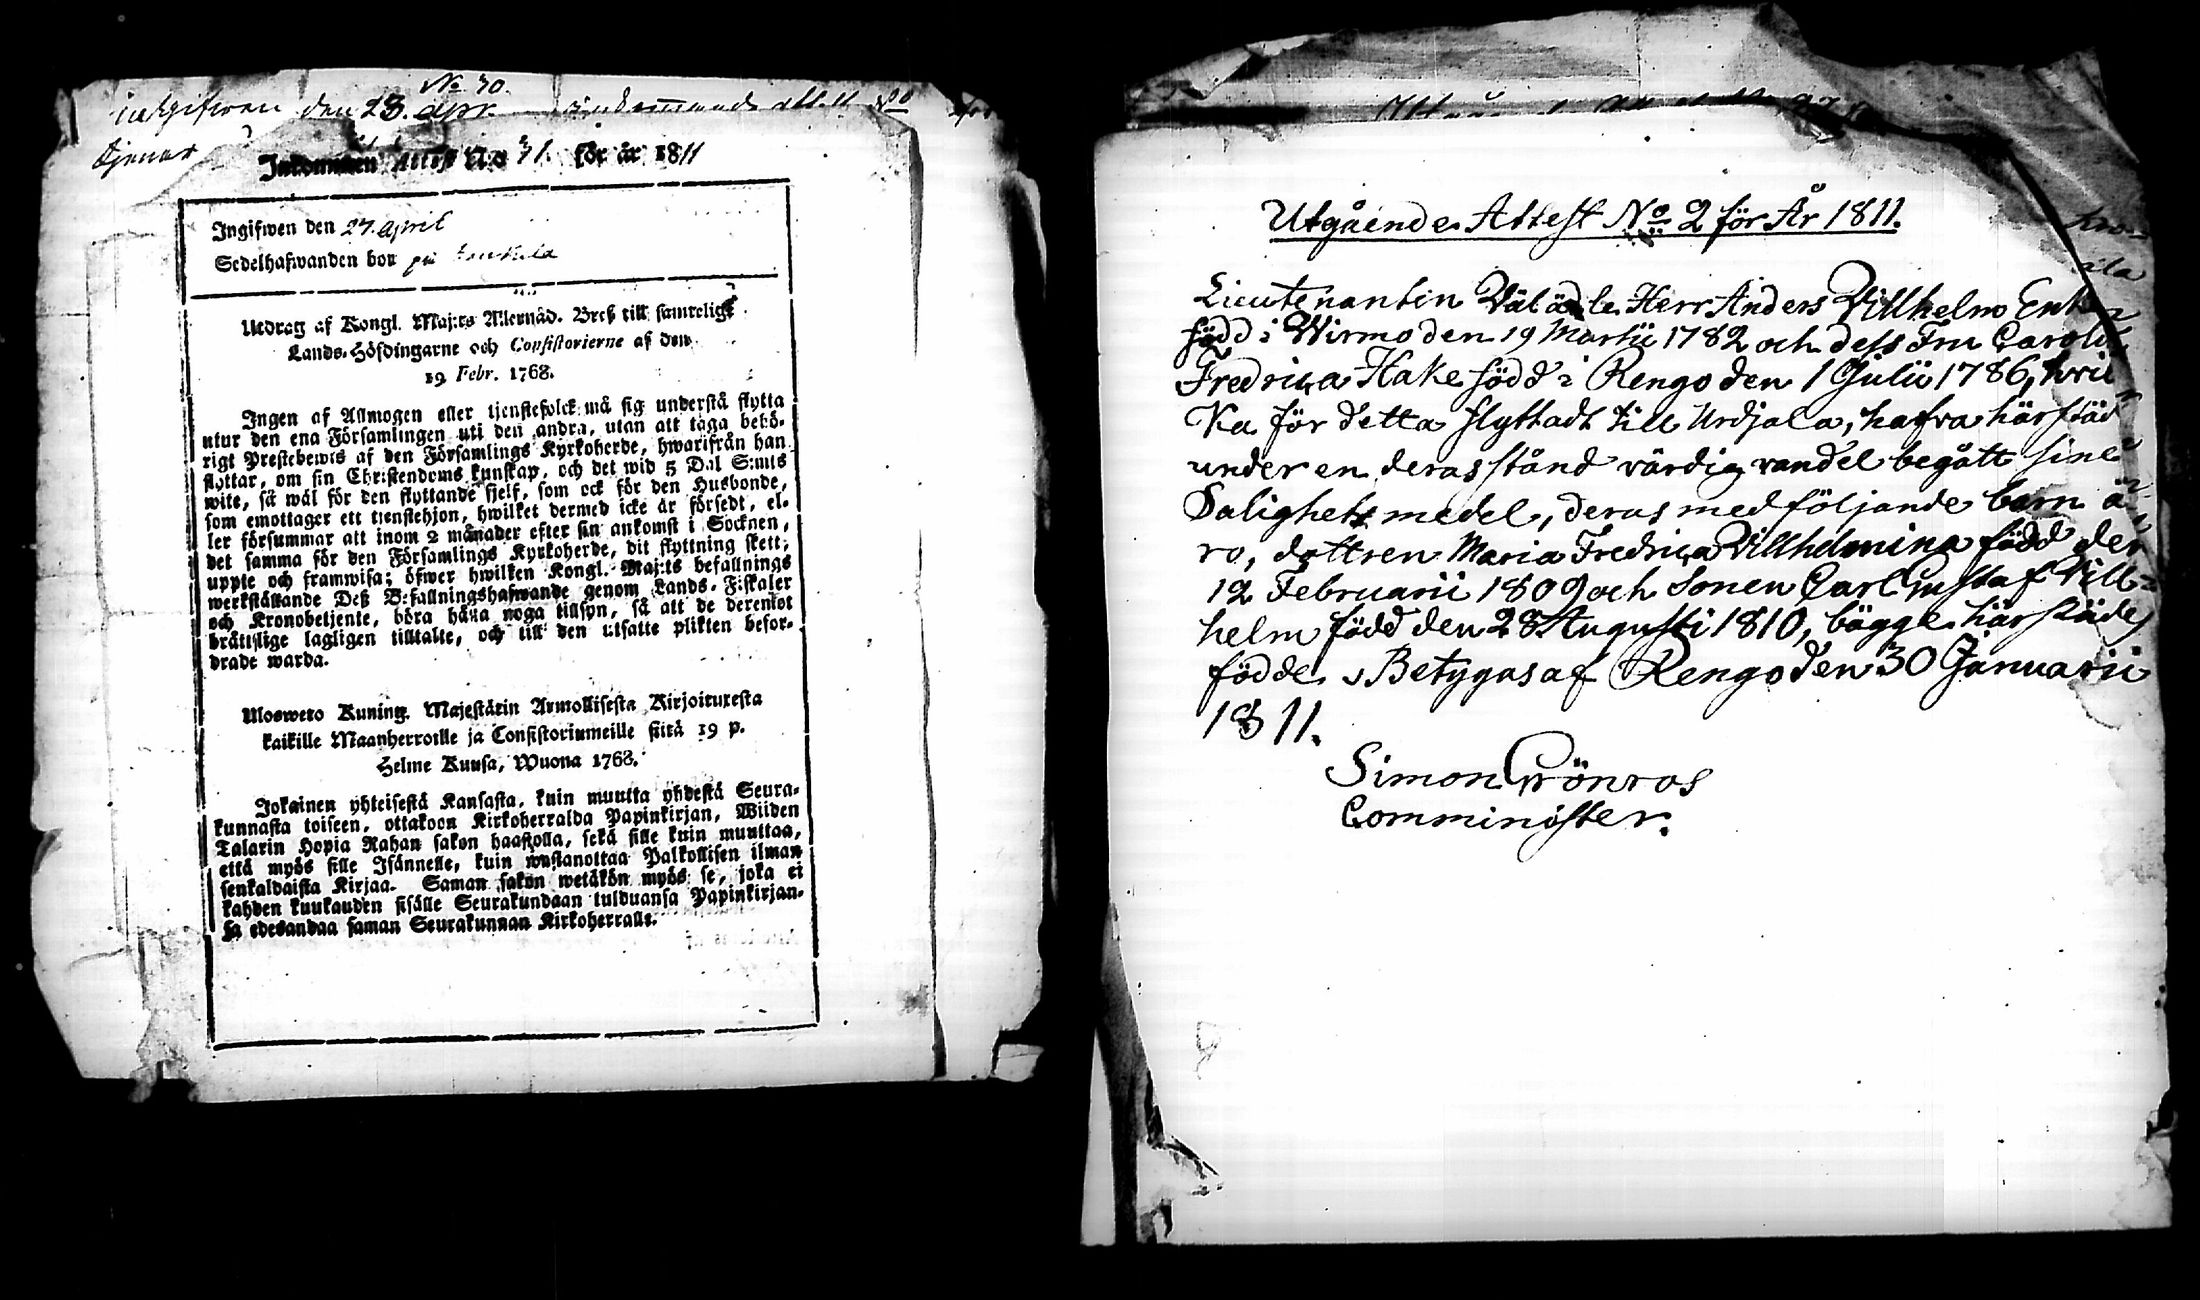 No 30.
inkgifwen den 28. apr.
Inkommen Attest No 31. för år 1811
Ingifwen den 27. april
Sedelhafwanden bor på
Utdrag af Kongl. Maj:ts Allernåd. Bref till samtelige
Lands-Höfdingarne och Consistorierne af den
19 Febr. 1768.
Ingen af Allmogen eller tjenstefolck må sig understå flytta
utur den ena Församlingen uti den andra, utan att taga behö-
rigt Prestebewis af den Församlings Kyrkoherde, hwarifrån han
flyttar, om sin Christendoms kunskap, och det wid 5 Dal S:mts
wite, så wäl för den flyttande sjelf, som ock för den Husbonde,
som emottager ett tjenstehjon, hwilket dermed icke är försedt, el-
ler försummar att inom 2 månader efter sin ankomst i Socknen,
det samma för den Församlings Kyrkoherde, dit flyttning skett,
uppte och framwisa; öfwer hwilken Kongl. Maj:ts befallnings
werkställande Deß Befallningshafwande genom Lands-Fiskaler
och Kronobetjente, böra hafwa noga tillsyn, så att de deremot
bråttslige lagligen tilltalte, och till den utsatte plikten befor-
drade warda.
Uloswero Kuning. Majestätin Armollisesta Kirjoituxesta
kaikille Maanherroille ja Consistoriumeille siitä 19 p.
Helme Kuusa, Wuona 1768.
Jokainen yhteisestä Kansasta, kuin muutta yhdestä Seura-
kunnasta toiseen, ottakoon Kirkoherralda Papinkirjan, Wiiden
Talarin Hopia Rahan sakon haastolla, sekä sille kuin muuttaa,
että myös sille Isännelle, kuin wastanottaa Palkollisen ilman
senkaldaista Kirjaa. Saman sakon wetäkön myös se, joka ei
kahden kuukauden sisälle Seurakundaan tulduansa Papinkirjan-
sa edesandaa saman Seurakunnan Kirkoherralle.
Utgående Attest No 2 för År 1811.
Lieutenanten Välädle Herr Anders Villhelm
född i Wirmo den 19 Martii 1782 och dess Fru
Fredrica Hake född i Rengo den 1 Julii 1786, hvil
ka för detta flyttadt till Urdjala, hafva härstäd
under en deras stånd värdig vandel begått sine
Salighets medel, deras medföljande barn ä
ro, dottren Maria Fredrica Villhelmina född den
12 Februarii 1809 och Sonen Carl Gustaf Vill-
helm född den 28 Augusti 1810, bägge härstädes
födde. Betygas af Rengo den 30 Januarii
1811.
Simon Grönros
Comminister.